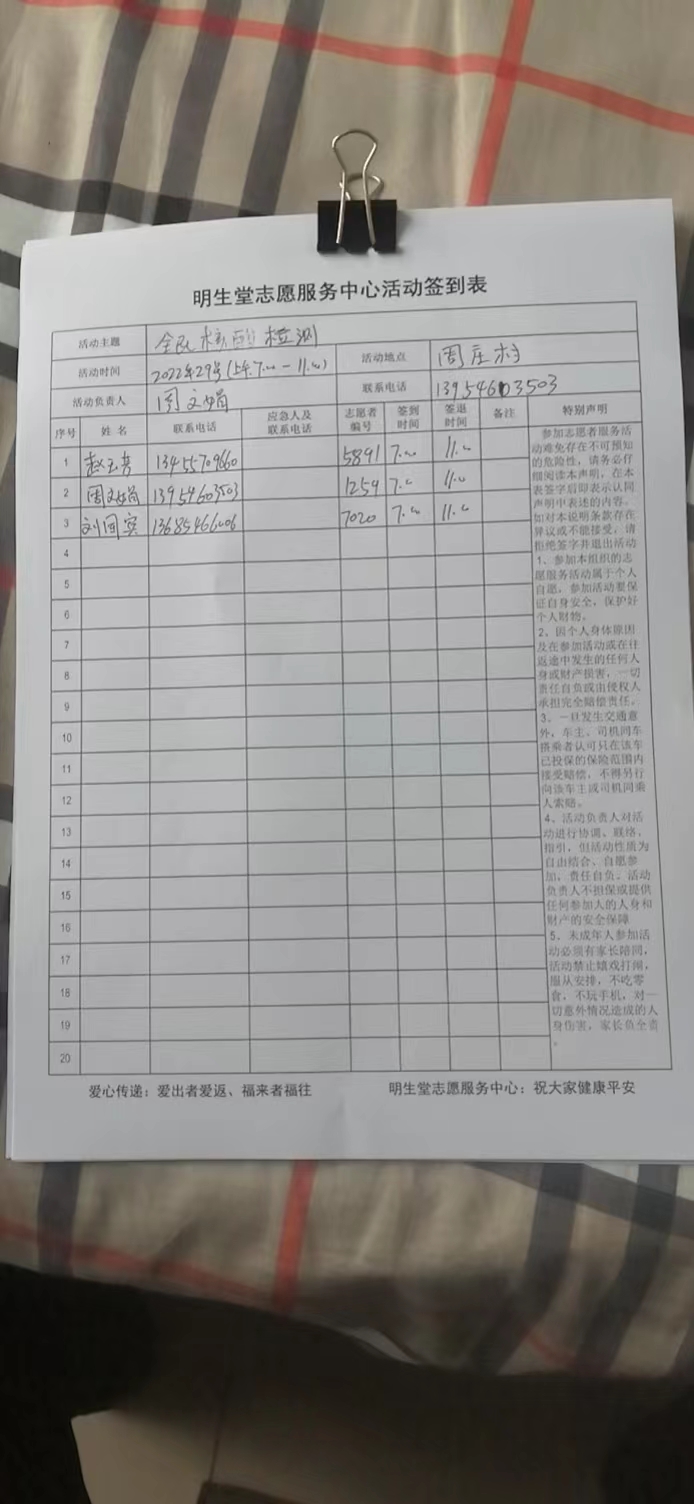 明生堂志愿服务中心活动签到表
活动主题 全民核酸检测
活动时间 2022年29号(上午.7.00-11.00) 活动地点 周庄村
活动负责人 周文娟 联系电话 13954603503
序号 姓名 联系电话 应急人及联系电话 志愿者编号 签到时间 签退时间 备注 特别声明
1 赵玉 13455709660 5891 7.00 11.00
2 周文娟 13954603503 1259 7.00 11.00
3 刘国宾 13685466006 7020 7.00 11.00
4
5
6
7
8
9
10
11
12
13
14
15
16
17
18
19
20
参加志愿者服务活
动难免存在不可预知
的危险性，请务必仔
细阅读本声明，在本
表签字后即表示认同
声明中表述的内容。
如对本说明条款存在
异议或不能接受，请
拒绝签字并退出活动
1、参加本组织的志
愿服务活动属于个人
自愿，参加活动要保
证自身安全，保护好
个人财物。
2、因个人身体原因
及在参加活动或在往
返途中发生的任何人
身或财产损害，一切
责任自负或由侵权人
承担完全赔偿责任。
3、一旦发生交通意
外，车主、司机同车
搭乘者认可只在该车
已投保的保险范围内
接受赔偿，不得另行
向该车主或司机同乘
人索赔。
4、活动负责人对活
动进行协调、联络、
指引，但活动性质为
自由结合、自愿参
加、责任自负。活动
负责人不担保或提供
任何参加人的人身和
财产的安全保障
5、未成年人参加活
动必须有家长陪同，
活动禁止嬉戏打闹，
服从安排，不吃零
食，不玩手机，对一
切意外情况造成的人
身伤害，家长负全责
。
爱心传递：爱出者爱返、福来者福往 明生堂志愿服务中心：祝大家健康平安